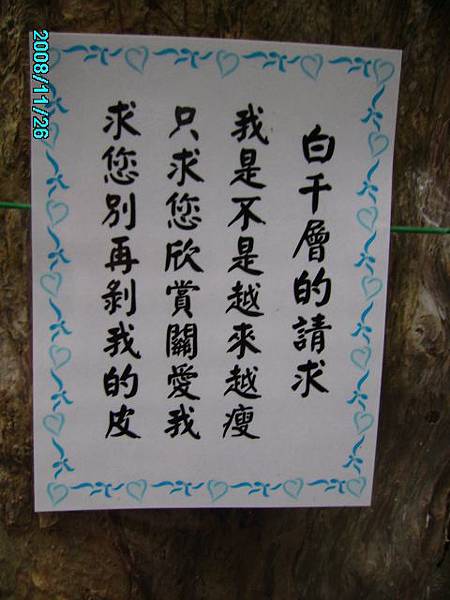 白千層的請求
我是不是越來越瘦
只求您欣賞關愛我
求您別再剝我的皮
2008/11/26